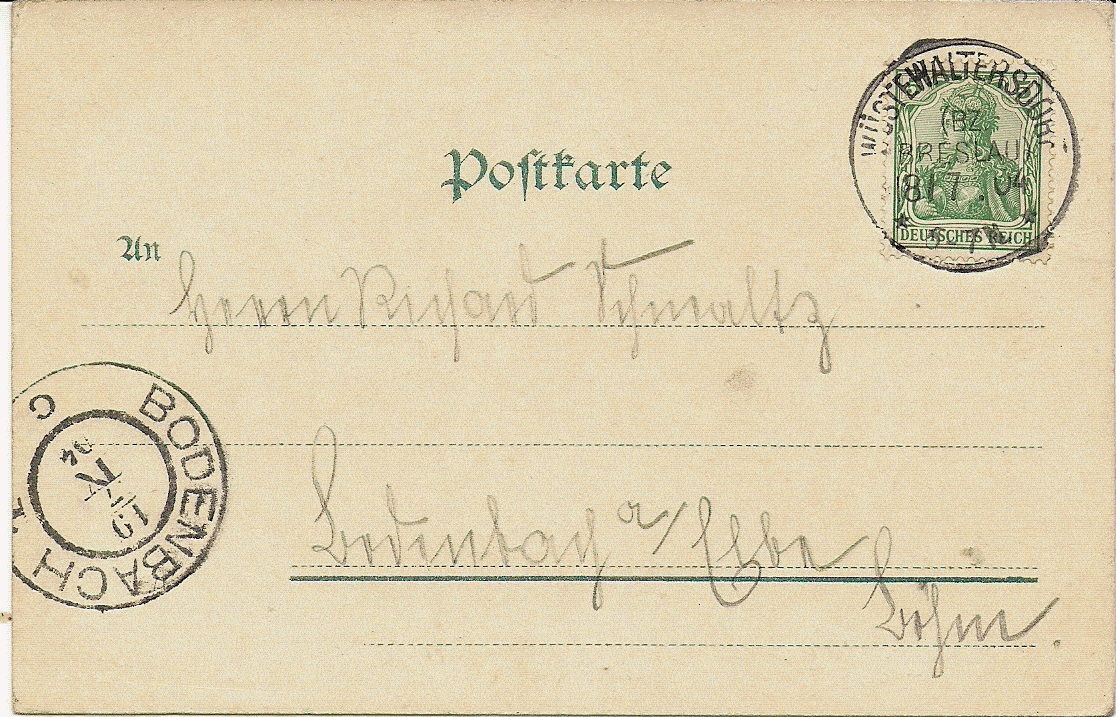 Postkarte
WÜSTEWALTERSDORF
(BZ.
BRESLAU)
8/7.04
DEUTSCHES REICH
An
Herrn Richard Schmaltz
BODENBACH
C
04
Bodenbach a/Elbe
Böhm.